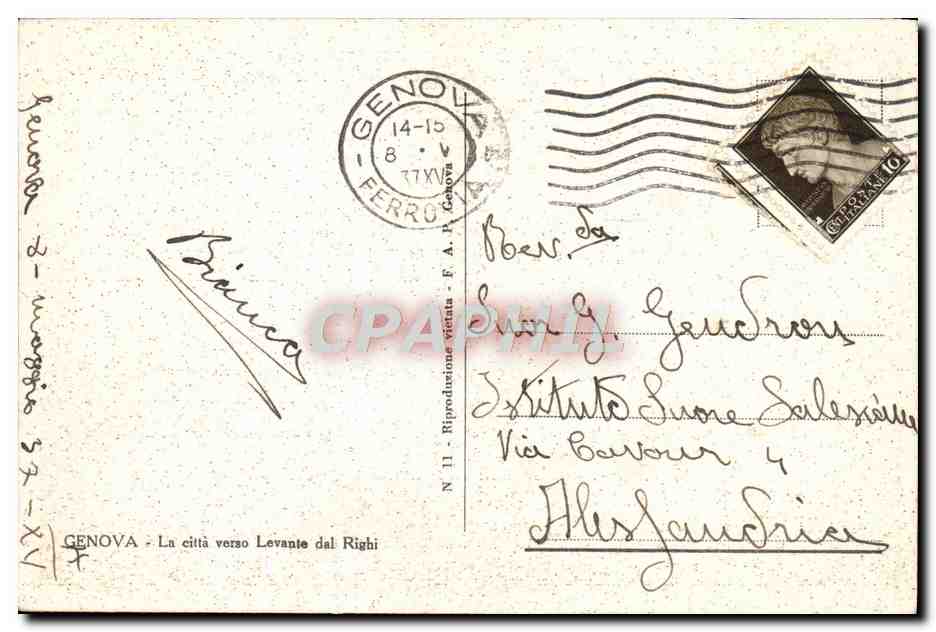 Genova 8 - maggio 37 - XV
Bianca
GENOVA - La città verso Levante dal Righi
N 11 - Riproduzione vietata - F. A. P. Genova
GENOVA
14-15
8 · V
37 XV
FERROVIA
POSTE
ITALIANE
CENT.
10
Rev. da
Suor G. Gendron
Istituto Suore Salesiane
Via Cavour 4
Alessandria
CPAPHIL